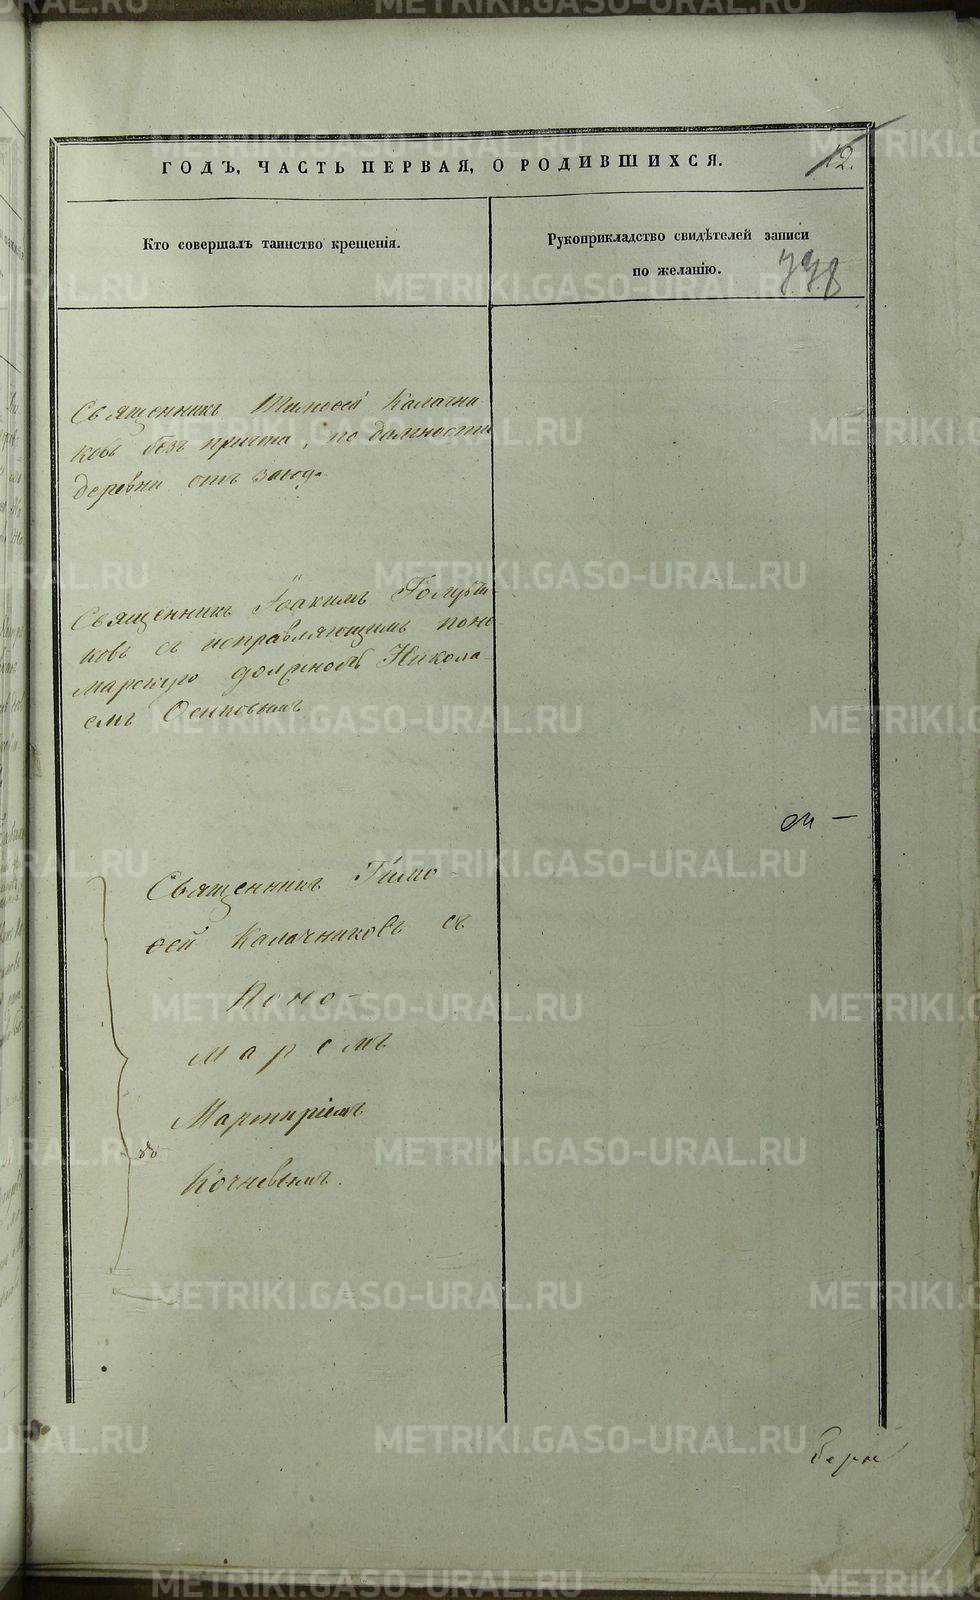 ГОДЪ, ЧАСТЬ ПЕРВАЯ, О РОДИВШИХСЯ.
12.
Кто совершалъ таинство крещенія.
Рукоприкладство свидѣтелей записи
по желанію.
Священникъ Тимоѳей Калачни
ковъ безъ причта, по дальности
деревни отъ завода
Священникъ Іоакимъ Голубчи
ковъ съ исправляющимъ поно
марскую должность Никола-
емъ Осиповымъ
Священникъ Тимо-
ѳей Калачниковъ съ
Поно-
маремъ
Мартиріемъ
Кочневымъ.
METRIKI.GASO-URAL.RU